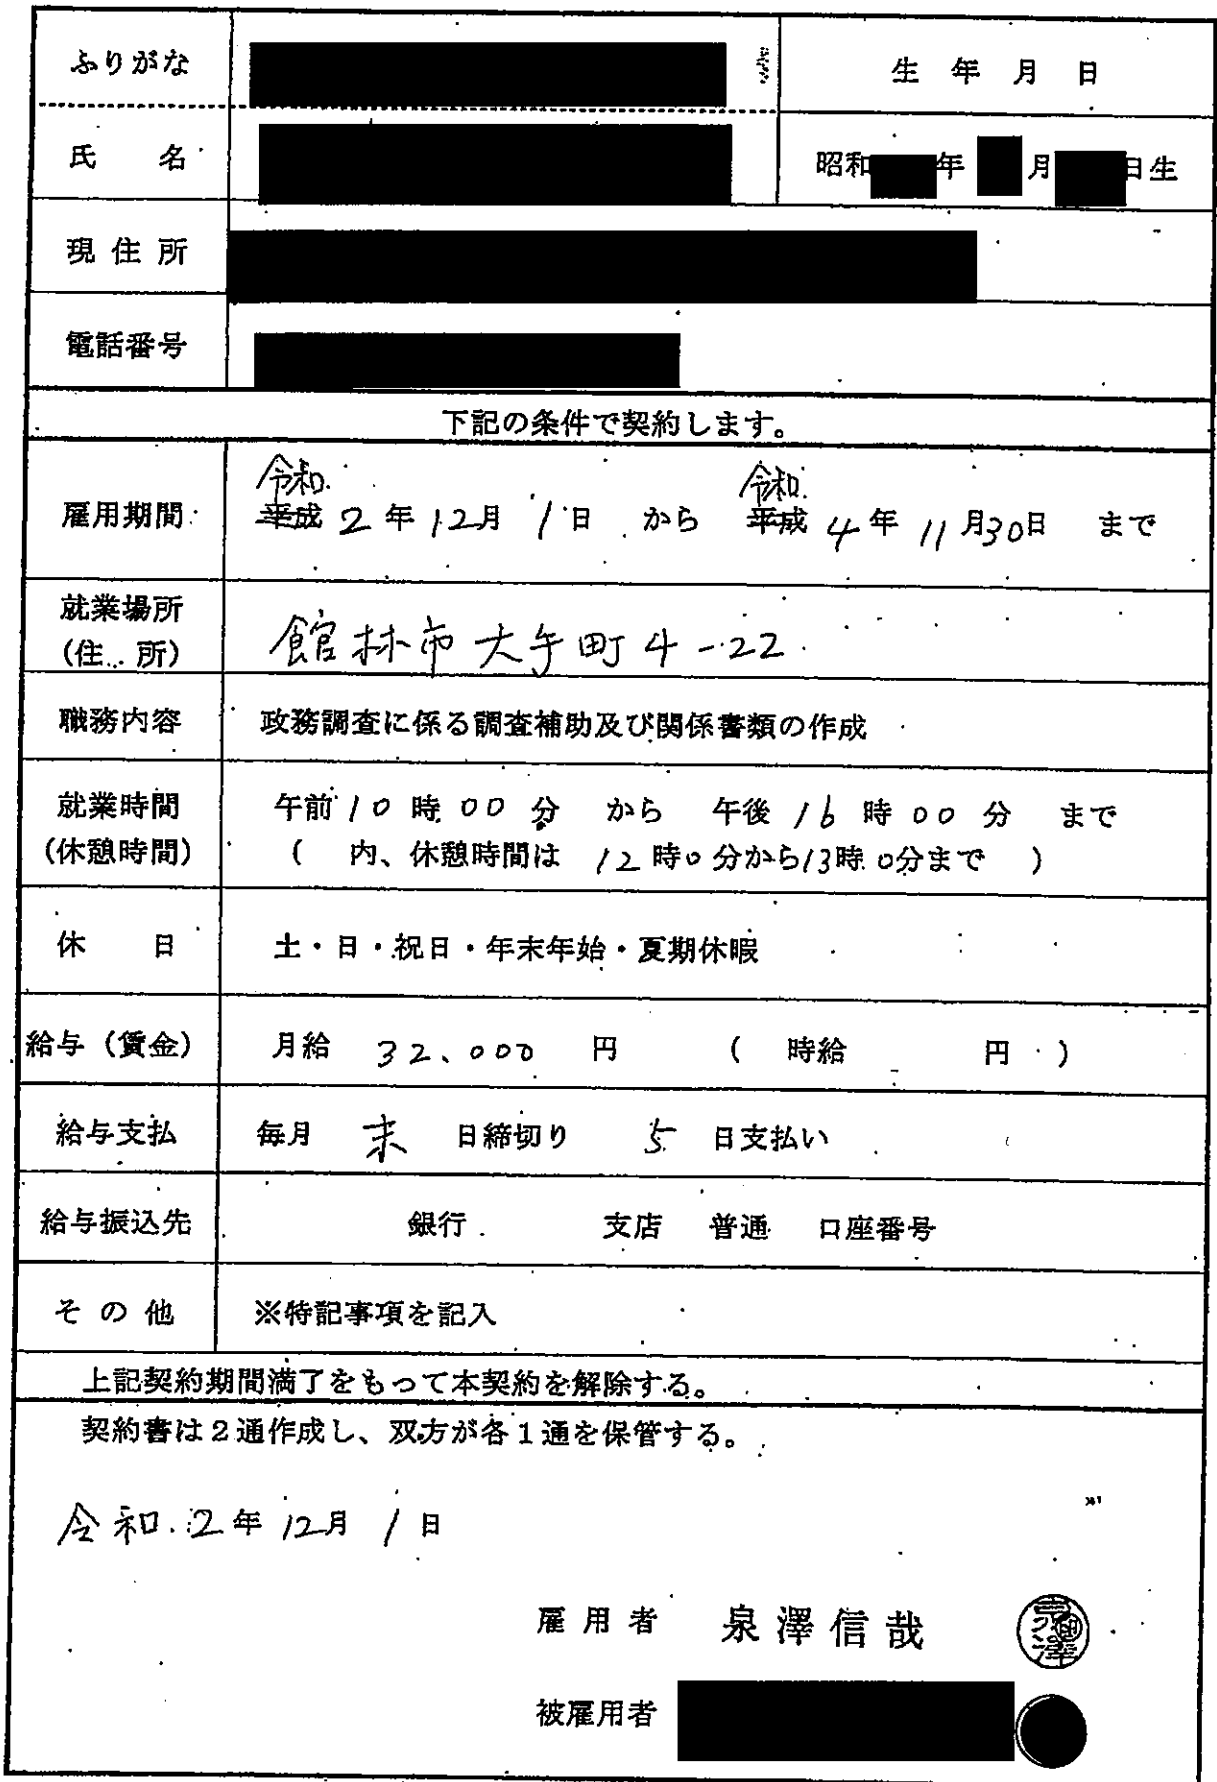 ふりがな
生 年 月 日
氏 名
昭和 年 月 日生
現 住 所
電話番号
下記の条件で契約します。
令和 令和
雇用期間 平成 2 年 12月 1 日 から 平成 4 年 11 月30日 まで
就業場所
(住 所) 館林市大手町4-22
職務内容 政務調査に係る調査補助及び関係書類の作成
就業時間 午前 10 時 00 分 から 午後 16 時 00 分 まで
(休憩時間) ( 内、休憩時間は 12 時0 分から13時 0分まで )
休 日 土・日・祝日・年末年始・夏期休暇
給与(賃金) 月給 32、000 円 ( 時給 円 )
給与支払 毎月 末 日締切り 5 日支払い
給与振込先 銀行 支店 普通 口座番号
そ の 他 ※特記事項を記入
上記契約期間満了をもって本契約を解除する。
契約書は2通作成し、双方が各1通を保管する。
令和 2 年 12月 1 日
雇 用 者 泉 澤 信 哉
泉澤印
被雇用者